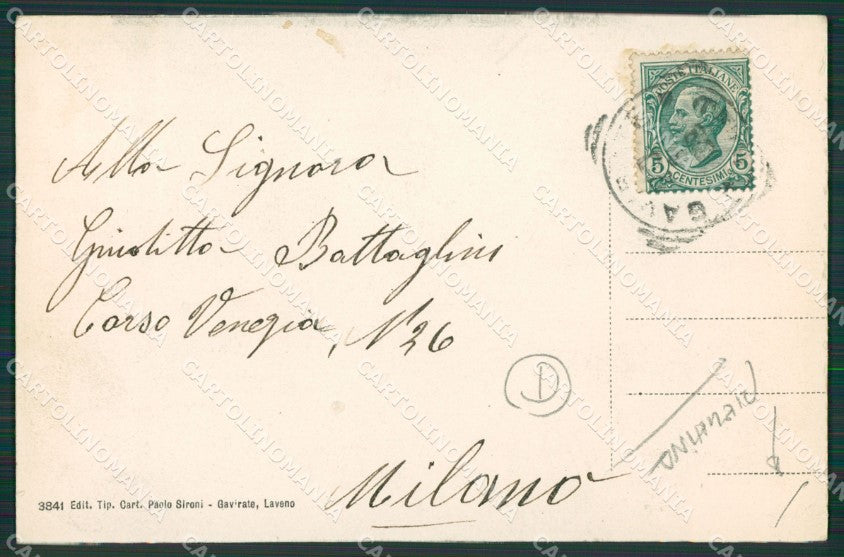 Alla Signora
Giulitta Battaglini
Corso Venezia, N 26
Milano
POSTE ITALIANE
5 5
CENTESIMI
3841 Edit. Tip. Cart. Paolo Sironi - Gavirate, Laveno
CARTOLINOMANIA